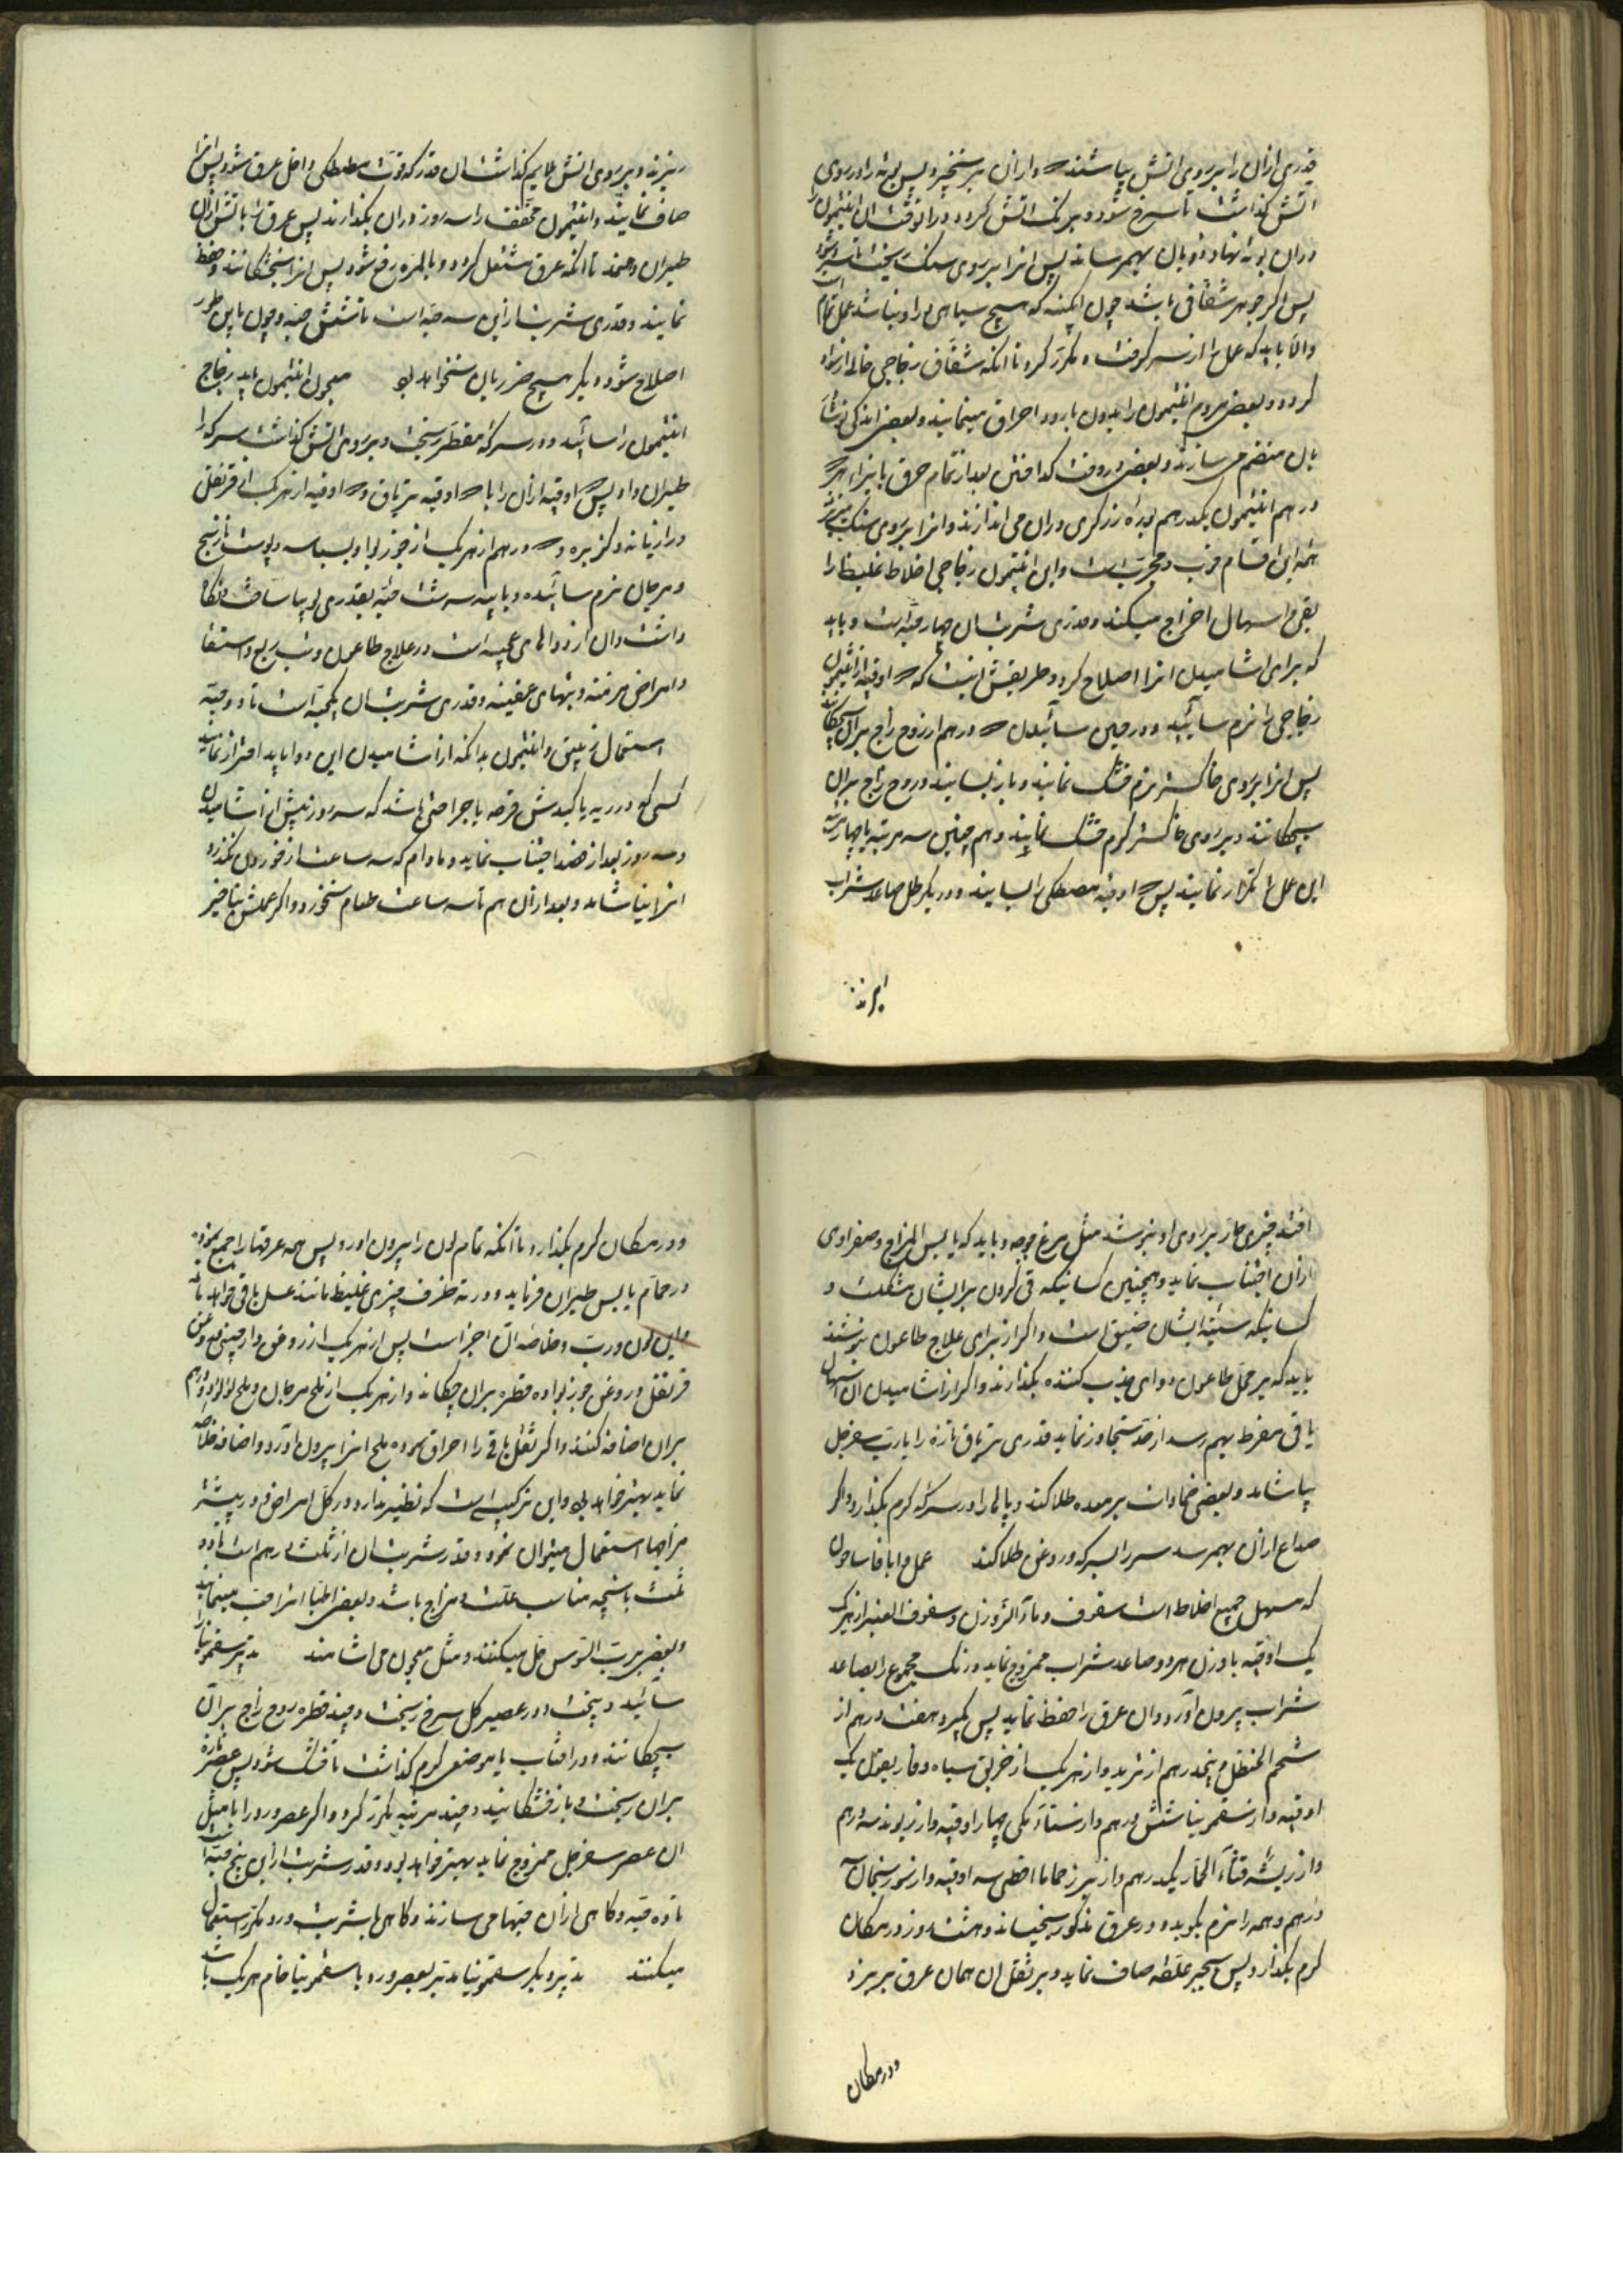 قدری ازان را بر روی اتش بپاشند و ازان برنخیزد پس بوته را در روی
اتش گذاشت تا سرخ شود و برنک اتش کردد و درانوقت ان انتیمون را
دران بوته نهاد ذوبان بهمرساند پس انرا بر روی سنک ریخت تا سرد شود
پس اکر جوهر شفافی باشد چون ابکینه که هیچ سیاهی در او نباشد عمل تمام است
والا باید که عمل را از سر کرفت و مکرر کرد تا انکه شفاف زجاجی خالی از سواد
کردد و بعضی مردم انتیمون را بدون بارود احراق مینمایند و بعضی اندکی
بان منضم می سازند و بعضی در وقت کداختن بعد از تمام حرق با هر
درهم انتیمون یکدرهم بوره زرکری دران می اندازند و انرا بر روی سنک میریزند
همه این اقسام خوب و مجربست و این انتیمون زجاجی اخلاط غلیظه را
بقی و اسهال اخراج میکند و قدری شربت ان چهار حبه است و باید
که برای اشامیدن انرا اصلاح کرد و طریقش اینست که اوقیه از انتیمون
زجاجی را نرم سائید و در حین سائیدن درهم از روح زاج بران بچکانند
پس انرا بر روی خاکستر نرم خشک نمایند و باز بسایند و روح زاج بران
بچکانند و بر روی خاکستر کرم خشک نمایند و هم چنین سه مرتبه یا چهار مرتبه
این عمل را تکرار نمایند پس اوقیه مصطکی را بسایند و در یکرطل صاعد شراب
بریزند
ریزند و بر روی اتش ملایم گذاشت ان قدر که قوت مصطکی داخل عرق شود پس انرا
صاف نمایند و انتیمون مجفف را سه روز دران بکذارند پس عرق را باتش ازان
طیران دهند تا انکه عرق مشتعل کردد و بالمره رفع شود پس انرا خشکانند و حفظ
نمایند و قدری شربت ازین سه حبه است تا شش حبه و چون باین طور
اصلاح شود دیکر هیچ ضرر بان نخواهد بود معجون انتیمون باید زجاج
انتیمون را سائید و در سرکه مقطر ریخت و بر روی اتش کذاشت سرکه را
طیران داد پس اوقیه ازان را با اوقیه تریاق و اوقیه از هریک از قرنفل
و رازیانه و کزبره و درهم از هریک از جوز بوا و بسباسه و پوست نارنج
و مرجان نرم سائیده و بایه سه شت حبه بقدری
داشت و ان از دواهای عجیبه است در علاج طاعون و تب ربع و استسقا
و امراض مزمنه و تبهای عفینه و قدری شربت ان یکحبه است تا دو حبه
استعمال زیبق و انتیمون بدانکه از اشامیدن این دوا باید احتراز نماید
کسی که در ریه یا کبدش قرحه یا جراحتی باشد که سه روز پیش از اشامیدن
و سه روز بعد از فصد اجتناب نماید و مادام که سه ساعت از خوردن نکذرد
انرا نیاشامد و بعد ازان هم تا سه ساعت طعام نخورد و اکر عملش بتاخیر
افتد چیزی حار بر روی او بنوشد مثل مرغ جوجه و باید که یابس المزاج و صفراوی
ازان اجتناب نماید و همچنین کسانیکه قی کردن برایشان مشکلست و
کسانیکه سینه ایشان ضیق است و اکر از برای علاج طاعون بنوشند
باید که بر محل طاعون دوای جذب کننده بکذارند و اکر از اشامیدن ان اسهال
یا قی مفرط بهم رسد از حد تجاوز نماید قدری تریاق تازه را با رب سفرجل
بیاشامد و بعضی ضمادات بر معده طلا کند و پاها را در سرکه کرم بکذارد و اکر
صداع ازان بهمرسد سر را بسرکه و روغن طلا کند عمل و ابافاساحون
که مسهل جمیع اخلاط است سفوف و سفوف العنبر از هریک
یک اوقیه با وزن هر دو صاعد شراب ممزوج نماید و رنک مجموع را بصاعد
شراب بیرون آورد و ان عرق را حفظ نماید پس بکیرد هفت درهم از
شحم الحنظل و پنجدرهم از تربد و از هریک از خربق سیاه و غاریقون یک
اوقیه و از سقمونیا شش درهم و از سناء مکی چهار اوقیه و از ریوند سه درهم
و از ریشه قثاء الحمار یکدرهم و از بزر خمابا اقطی سه اوقیه و از سورنجان سه
درهم و همه را نرم بکوبد و در عرق مذکور بخیساند و هشت روز در مکان
کرم بکذارد پس بعصیر غلظه صاف نماید و بر ثقل ان همان عرق بریزد
و در مکان
و در مکان کرم بکذارد تا انکه تمام لون را بیرون اورد و پس همه عرقها را جمع نموده
در حمام یابس طیران فرماید و در ته ظرف چیزی غلیظ مانند عسل باقی خواهد ماند
و این لون و ربت و خاصه ان اجزاست پس از هریک از روغن دارچینی و روغن
قرنفل و روغن جوز بوا ده قطره بران چکاند و از هریک از ملح مرجان و ملح لؤلؤ دو درهم
بران اضافه کنند و اکر ثقل باقی را احراق نموده ملح انرا بیرون اورد و اضافه خلاصه
نماید بهتر خواهد بود و این ترکیبی است که نظیر ندارد و در کل امراض و در بیشتر
مزاجها استعمال میتوان نمود و قدر شربت ان از ثلث درهم است تا دو
ثلث بانچه مناسب علت و مزاج باشد و بعضی اطبا انرا حب مینمایند
و بعضی برب السوس حل میکنند و مثل معجون می اشامند تدبیر سقمونیا
سائید و پیخت و در عصیر کل سرخ ریخت و چند قطره روح زاج بران
بچکانند و در افتاب یا موضعی کرم کذاشت تا خشک شود پس عصیر تازه
بران ریخت و باز خشکانید و چند مرتبه مکرر کرد و اکر عصیر ورد را با مثل
ان عصیر سفرجل ممزوج نماید بهتر خواهد بود و قدر شربت ازین پنج حبه است
تا ده حبه و کاهی ازان حبها می سازند و کاهی با شربت ورد مکرر استعمال
میکنند تدبیر دیکر سقمونیا تدبیر بعصیر ورد یا سقمونیا خام هریک باشد